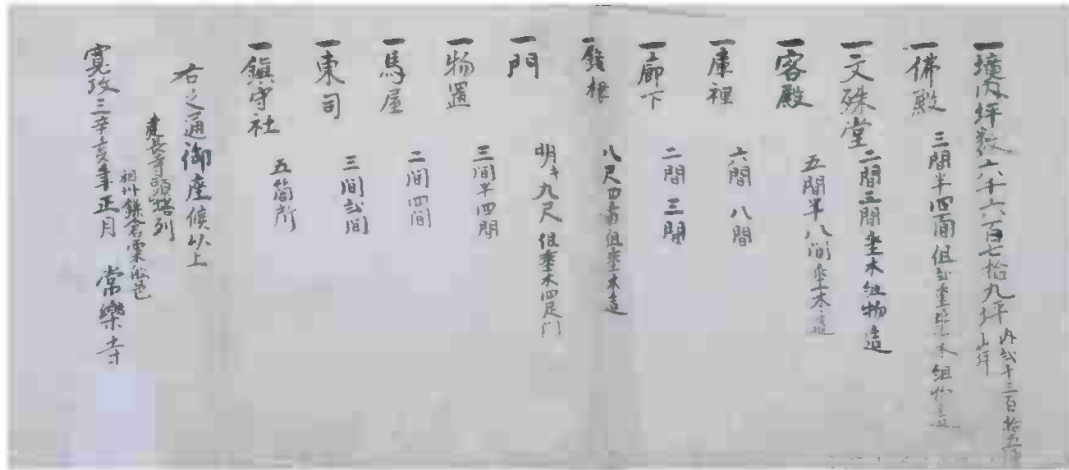 一境内坪数六千六百七拾九坪 内弐千三百拾五坪
山坪
一佛殿 三間半四面但弐重垂木組物造
一文殊堂 二間三間垂木組物造
一客殿 五間半八間垂木造
一庫裡 六間 八間
一廊下 二間 三間
一鐘楼 八尺四方但垂木造
一門 明キ九尺但垂木四足門
一物置 三間半四間
一馬屋 二間四間
一東司 三間弐間
一鎮守社 五箇所
右之通御座候以上
建長寺頭塔列
相州鎌倉粟船邑
寛政三辛亥年正月 常樂寺